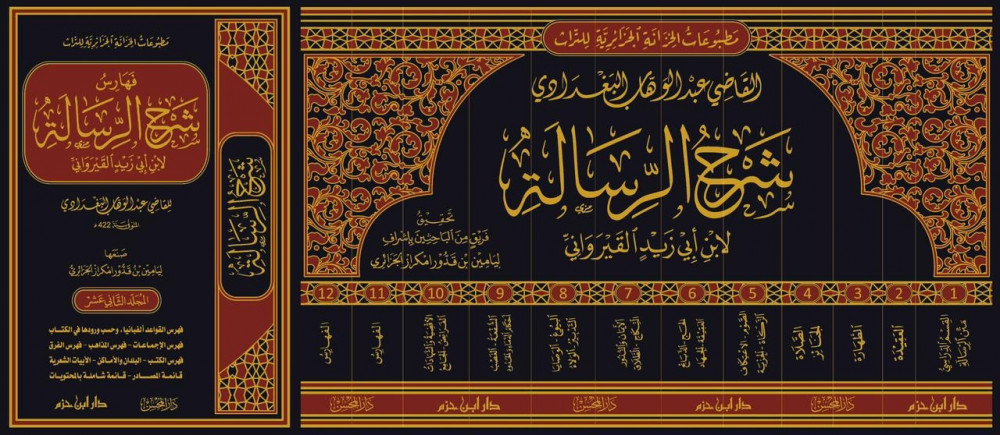 مطبوعات الخزانة الجزائرية للتراث
فهارس
شرح الرسالة
لابن أبي زيد القيرواني
للقاضي عبد الوهاب البغدادي
المتوفى سنة 422 هـ
صنعها
ليامين بن قدور امكراز الجزائري
المجلد الثاني عشر
فهرس القواعد ألفبائيا، وحسب ورودها في الكتاب
فهرس الإجماعات - فهرس المذاهب - فهرس الفرق
فهرس الكتب - البلدان والأماكن - الأبيات الشعرية
قائمة المصادر - قائمة شاملة بالمحتويات
دار ابن حزم
دار المحسن
شرح الرسالة
مطبوعات الخزانة الجزائرية للتراث
القاضي عبد الوهاب البغدادي
شرح الرسالة
لابن أبي زيد القيرواني
تحقيق
فريق من الباحثين بإشراف
ليامين بن قدور امكراز الجزائري
1 2 3 4 5 6 7 8 9 10 11 12
القسم الدراسي
متن الرسالة
العقيدة
الطهارة
الصلاة
الجنائز
الصوم - الاعتكاف
الزكاة - الجزية
الحج - الذبائح
العقيقة - الجهاد
الأيمان والنذور
النكاح - الطلاق
البيوع - الوصايا
الشفعة - الغصب
الفهارس
الفهارس
دار ابن حزم
دار المحسن
دار ابن حزم
دار المحسن
دار ابن حزم
دار المحسن